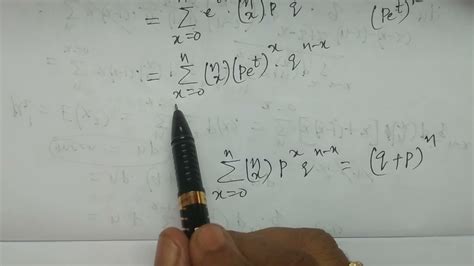 = Σ_{x=0}^{n} e (n x) p q . (pe^t)^x
= Σ_{x=0}^{n} (n x) (pe^t)^x . q^{n-x}
Σ_{x=0}^{n} (n x) p^x q^{n-x} = (q+p)^n